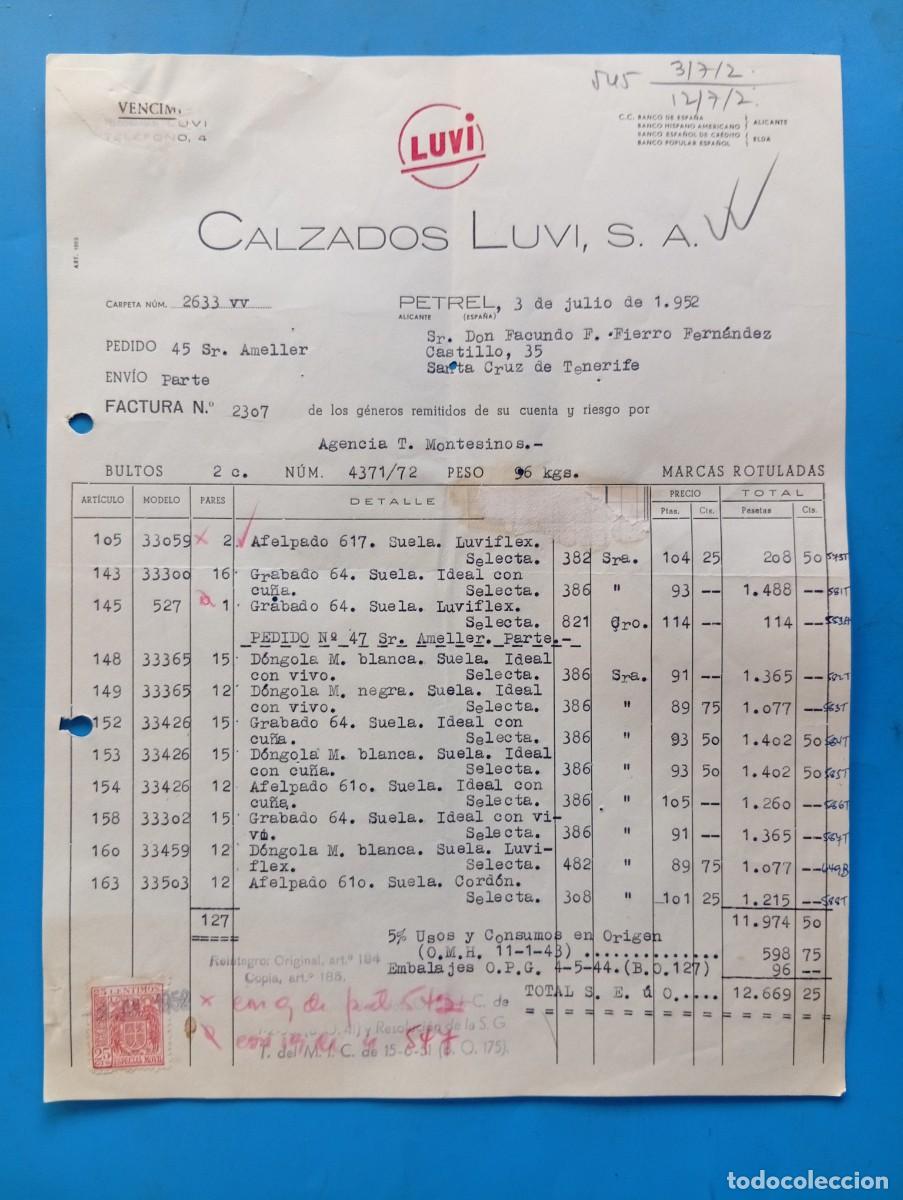 545 3/7/2.
12/7/2.
VENCIM
LUVI
TELÉFONO, 4
LUVi
C.C. BANCO DE ESPAÑA
BANCO HISPANO AMERICANO } ALICANTE
BANCO ESPAÑOL DE CRÉDITO
BANCO POPULAR ESPAÑOL } ELDA
CALZADOS LUVI, S. A.
CARPETA NÚM. 2633 VV
PETREL, 3 de julio de 1.952
ALICANTE (ESPAÑA)
PEDIDO 45 Sr. Ameller
Sr. Don Facundo F. Fierro Fernández
Castillo, 35
Santa Cruz de Tenerife
ENVÍO Parte
FACTURA N.º 2307 de los géneros remitidos de su cuenta y riesgo por
Agencia T. Montesinos.-
BULTOS 2 c. NÚM. 4371/72 PESO 96 kgs. MARCAS ROTULADAS
ARTÍCULO MODELO PARES DETALLE PRECIO TOTAL
Ptas. Cts. Pesetas Cts.
105 33059 x 2 Afelpado 617. Suela. Luviflex.
Selecta. 382 Sra. 104 25 208 50
143 33300 16 Grabado 64. Suela. Ideal con
cuña. Selecta. 386 " 93 -- 1.488 -- 581T
145 527 1 Grabado 64. Suela. Luviflex.
Selecta. 821 gro. 114 -- 114 --
PEDIDO Nº 47 Sr. Ameller. Parte.-
148 33365 15 Dóngola M. blanca. Suela. Ideal
con vivo. Selecta. 386 Sra. 91 -- 1.365 -- 582T
149 33365 12 Dóngola M. negra. Suela. Ideal
con vivo. Selecta. 386 " 89 75 1.077 -- 583T
152 33426 15 Grabado 64. Suela. Ideal con
cuña. Selecta. 386 " 93 50 1.402 50 584T
153 33426 15 Dóngola M. blanca. Suela. Ideal
con cuña. Selecta. 386 " 93 50 1.402 50 585T
154 33426 12 Afelpado 610. Suela. Ideal con
cuña. Selecta. 386 " 105 -- 1.260 -- 586T
158 33302 15 Grabado 64. Suela. Ideal con vi-
vo. Selecta. 386 " 91 -- 1.365 -- 587T
160 33459 12 Dóngola M. blanca. Suela. Luvi-
flex. Selecta. 482 " 89 75 1.077 -- 449B
163 33503 12 Afelpado 610. Suela. Cordón.
Selecta. 308 " 101 25 1.215 -- 588T
127 11.974 50
=====
5% Usos y Consumos en Origen
(O.M.H. 11-1-43)............... 598 75
Embalajes O.P.G. 4-5-44.(B.O.127) 96 --
TOTAL S. E. ú O..... 12.669 25
Reintegro: Original, art.º 184
Copia, art.º 185.
C. de
y Resolución de la S. G.
T. del M. I. C. de 15-6-51 (B. O. 175).
x 542
547
25 CENTIMOS
25
ESPECIAL MOVIL
todocoleccion